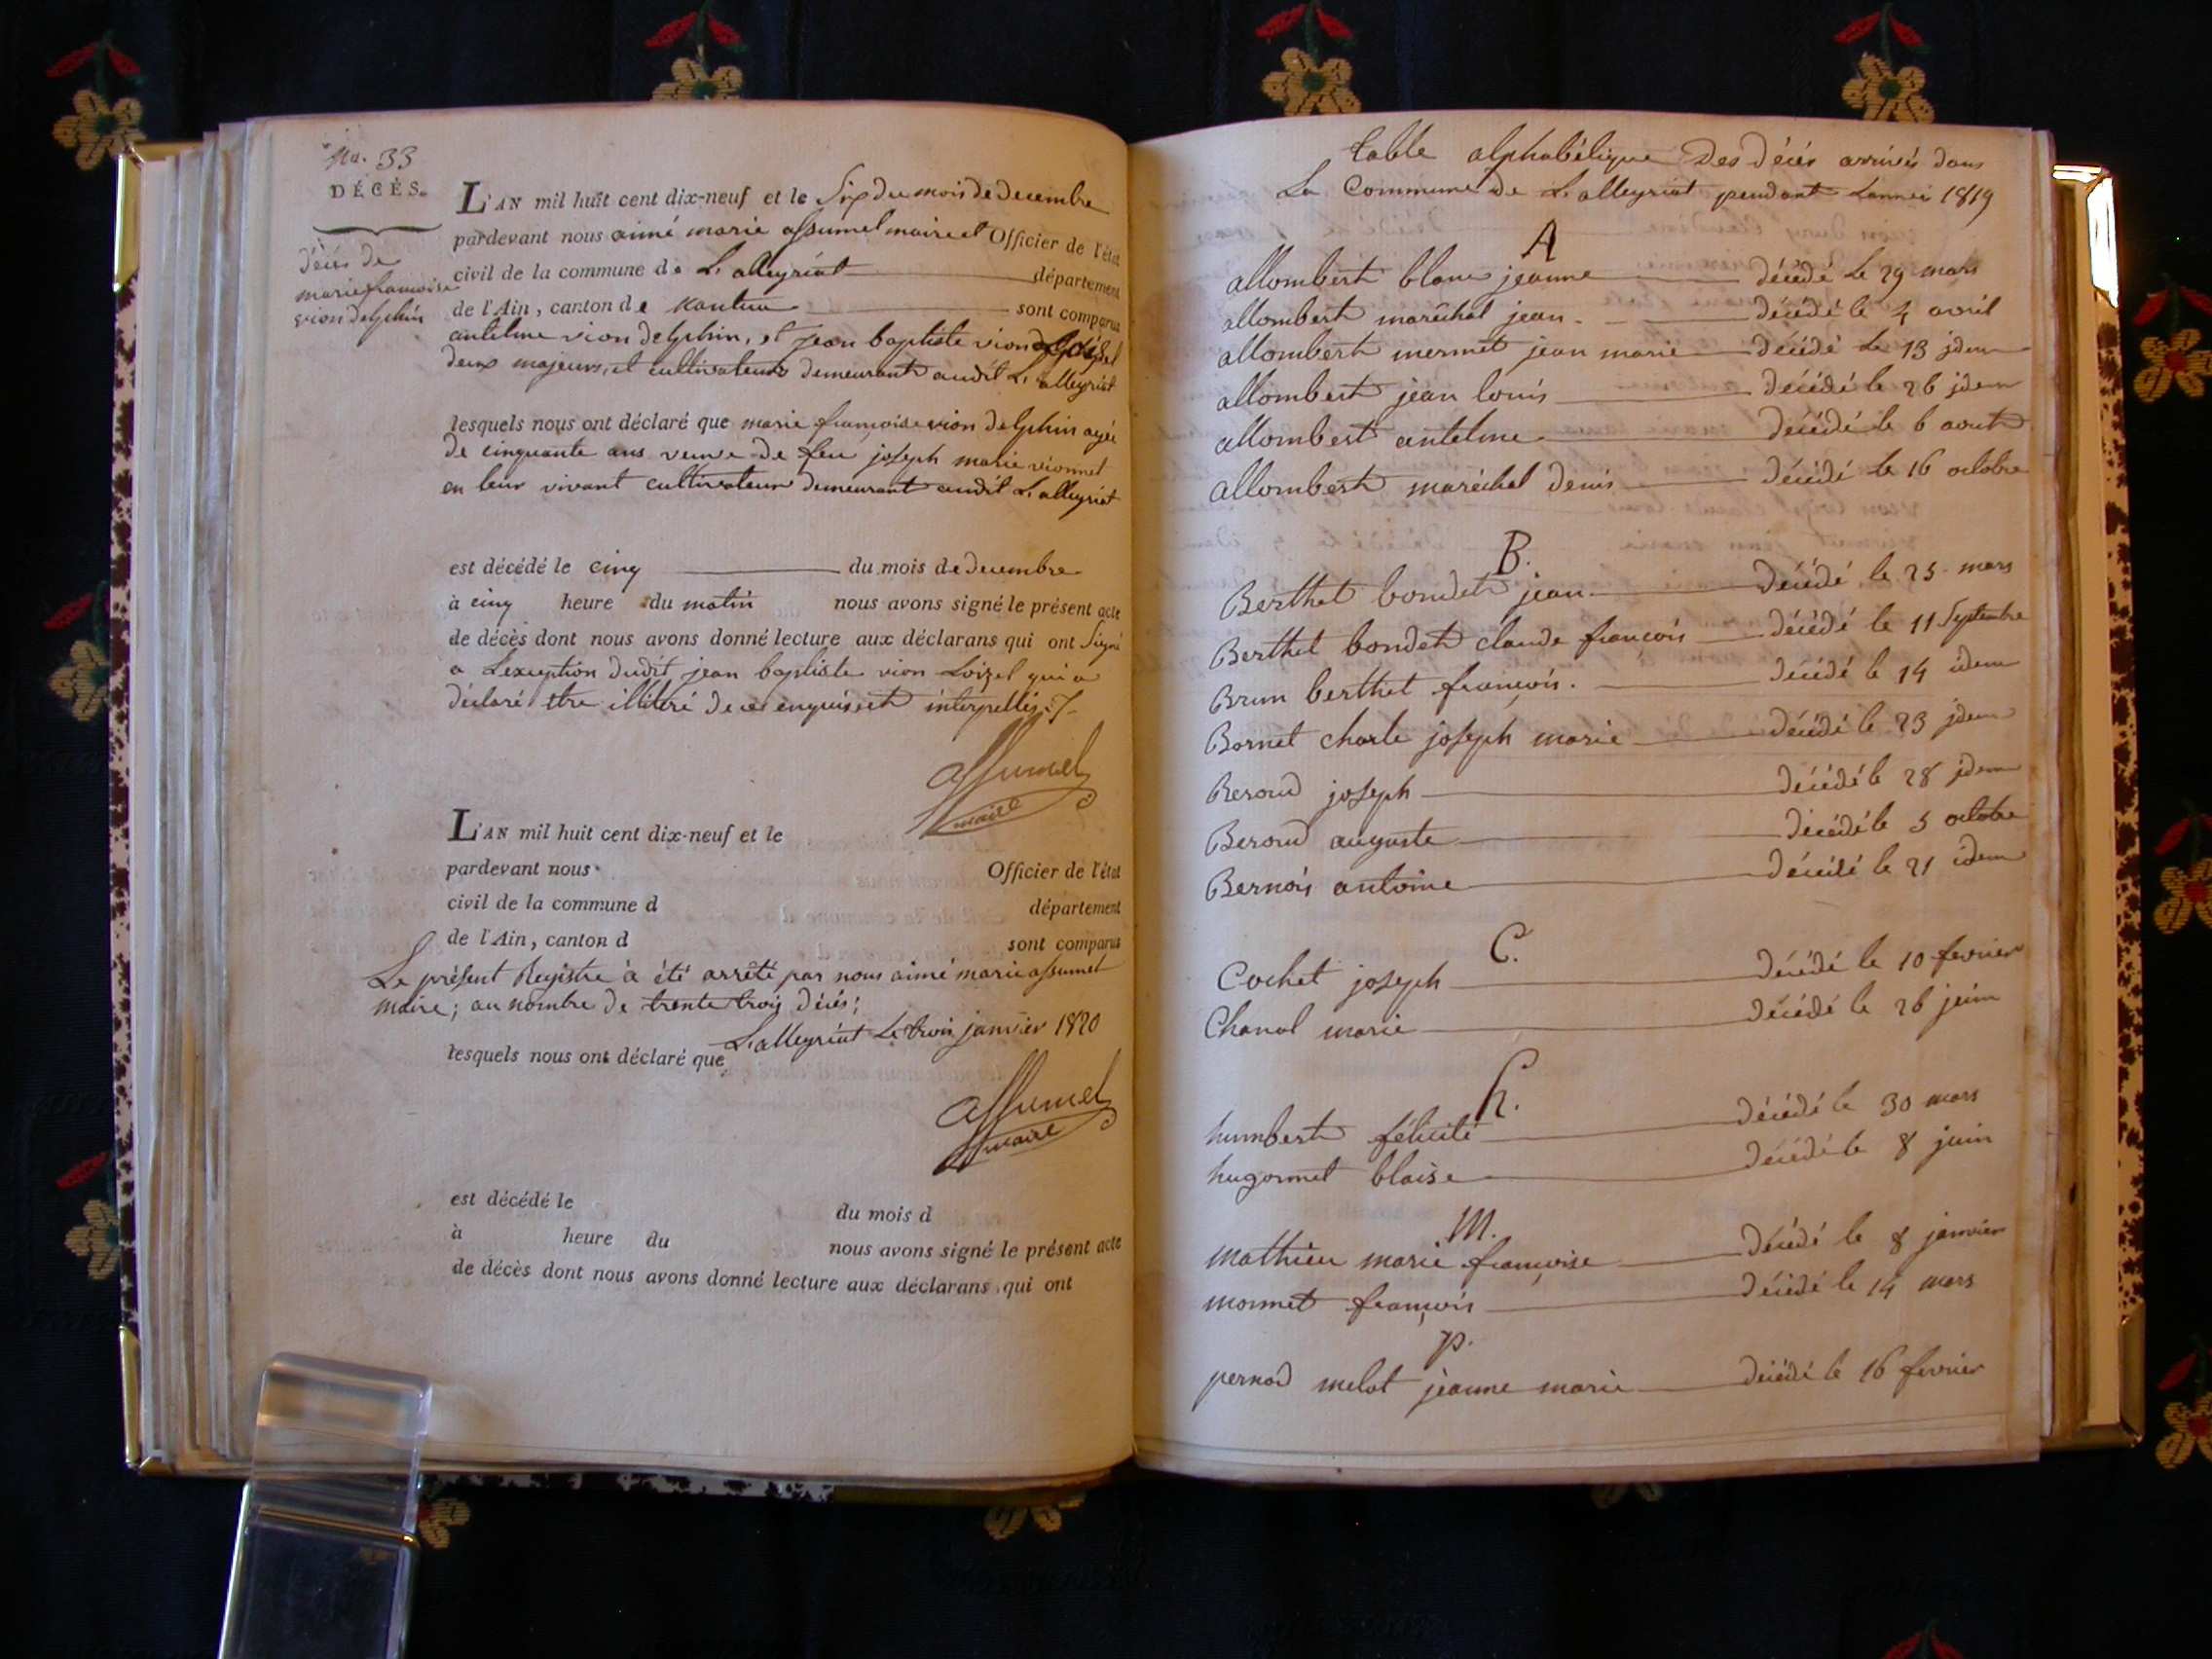 No. 33
DÉCÈS.
décès de
marie françoise
vion delphin
L'AN mil huit cent dix-neuf et le Six du mois de decembre
pardevant nous aimé marie assumel maire et Officier de l'état
civil de la commune de L'alleyriat département
de l'Ain, canton de nantua sont comparus
antelme vion delphin, et jean baptiste vion
deux majeurs, et cultivateurs demeurant audit L'alleyriat
lesquels nous ont déclaré que marie françoise vion delphin agée
de cinquante ans veuve de feu joseph marie vionnet
en leur vivant cultivateur demeurant audit L'alleyriat
est décédé le cinq du mois de decembre
à cinq heure du matin nous avons signé le présent acte
de décès dont nous avons donné lecture aux déclarans qui ont Signé
a L'exception dudit jean baptiste vion Loizel qui a
déclaré etre illitéré de ce enquis et interpellés
assumel
maire
L'AN mil huit cent dix-neuf et le
pardevant nous Officier de l'état
civil de la commune d département
de l'Ain, canton d sont comparus
Le présent Registre à été arrêté par nous aimé marie assumel
maire; au nombre de trente trois décès;
L'alleyriat Le trois janvier 1820
lesquels nous ont déclaré que
assumel
maire
est décédé le du mois d
à heure du nous avons signé le présent acte
de décès dont nous avons donné lecture aux déclarans qui ont
table alphabétique Des décès arrivés dans
La Commune de L'alleyriat pendant L'année 1819
A
allombert blanc jeanne décédé Le 29 mars
allombert maréchal jean décédé le 4 avril
allombert mermet jean marie décédé Le 13 jdem
allombert jean louis décédé le 26 jdem
allombert antelme décédé le 6 aout
allombert maréchal denis décédé le 16 octobre
B.
Berthet bondet jean décédé le 25 mars
Berthet bondet claude françois décédé le 11 Septembre
Brun berthet françois. décédé le 14 idem
Bornet charle joseph marie décédé le 23 jdem
Beroud joseph décédé le 28 jdem
Beroud auguste décédé le 5 octobre
Bernois antoine décédé le 21 idem
C.
Cochet joseph décédé le 10 fevrier
Chanal marie décédé le 26 juin
h.
humbert félicité décédé le 30 mars
hugonnet blaise décédé le 8 juin
M.
mathieu marie françoise décédé le 8 janvier
monnet françois décédé le 14 mars
p.
pernod melot jeanne marie décédé le 16 fevrier